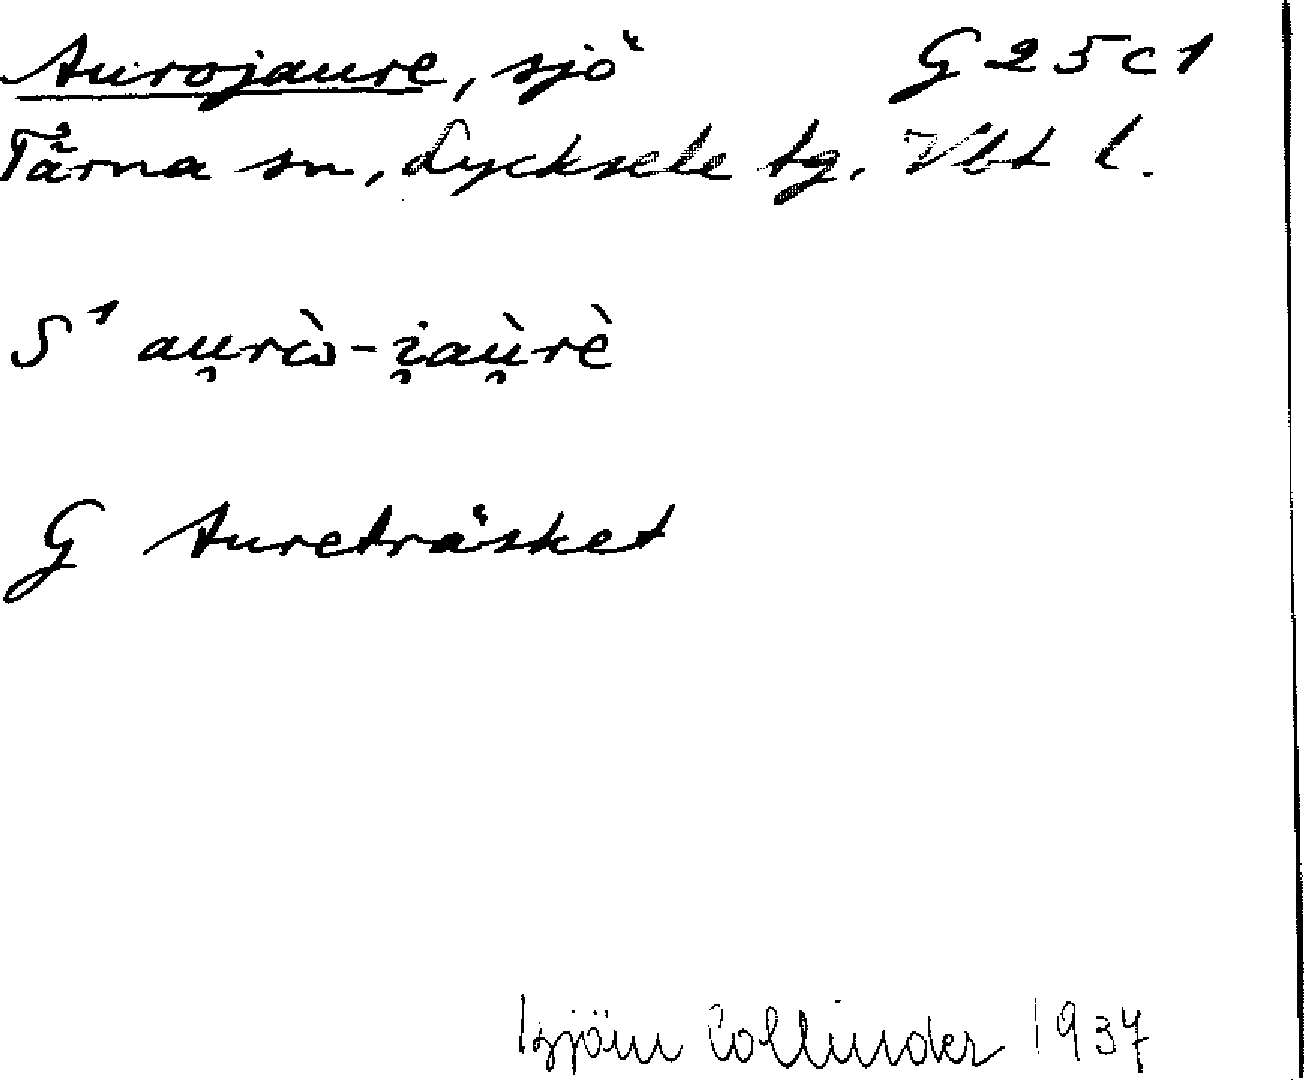 Aurojaure, sjö G 25 c 1
Tärna sn, Lycksele tg. Vbt l.
S¹ au̯rὼ-i̯aù̯rè
G Aureträsket
Björn Collinder 1937